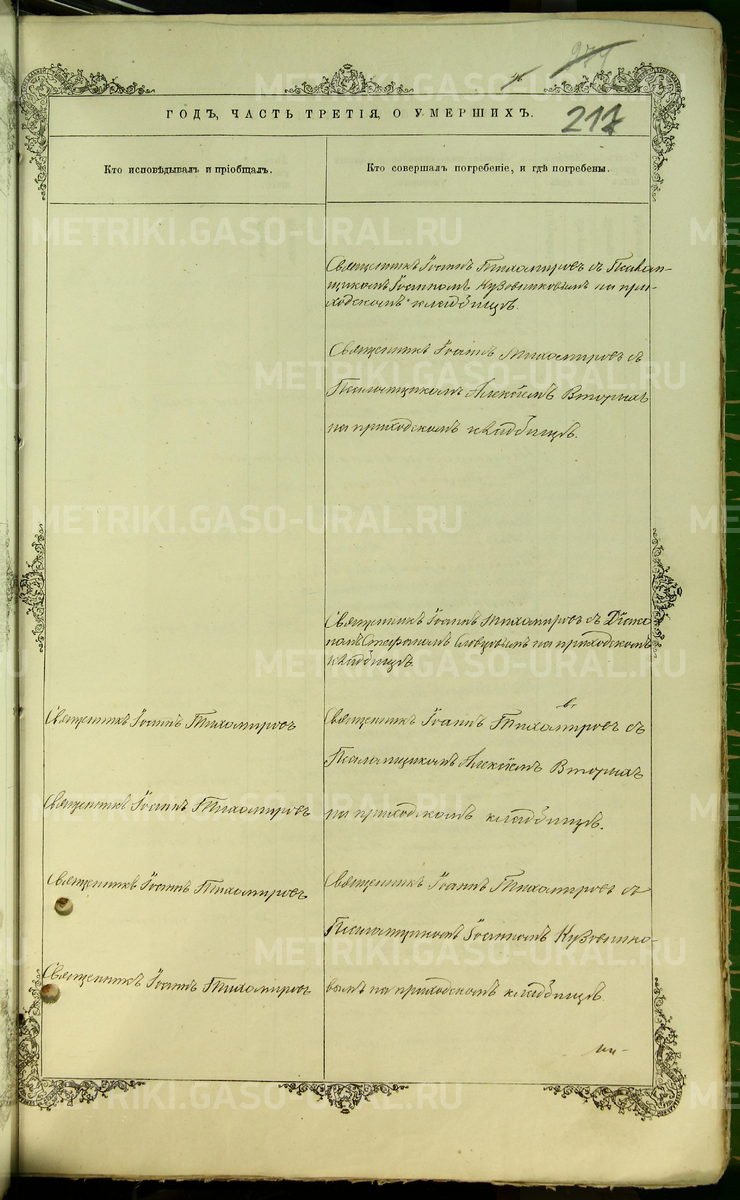 274
217
ГОДЪ, ЧАСТЬ ТРЕТІЯ, О УМЕРШИХЪ.
Кто исповѣдывалъ и пріобщалъ.
Кто совершалъ погребеніе, и гдѣ погребены.
Священникъ Іоаннъ Тихомировъ съ Псалом-
щикомъ Іоанномъ Кузовниковымъ на при-
ходскомъ кладбищѣ.
Священникъ Іоаннъ Тихомировъ съ
Псаломщикомъ Алексѣемъ Вторыхъ
на приходскомъ кладбищѣ.
Священникъ Іоаннъ Тихомировъ съ Діако
номъ Стефаномъ Словцовымъ на приходскомъ
кладбищѣ
Священникъ Іоаннъ Тихомировъ
Священникъ Іоаннъ Тихомировъ съ
Псаломщикомъ Алексѣемъ Вторыхъ
Священникъ Іоаннъ Тихомировъ
на приходскомъ кладбищѣ.
Священникъ Іоаннъ Тихомировъ
Священникъ Іоаннъ Тихомировъ съ
Псаломщикомъ Іоанномъ Кузовнико-
Священникъ Іоаннъ Тихомировъ
вымъ на приходскомъ кладбищѣ.
METRIKI.GASO-URAL.RU